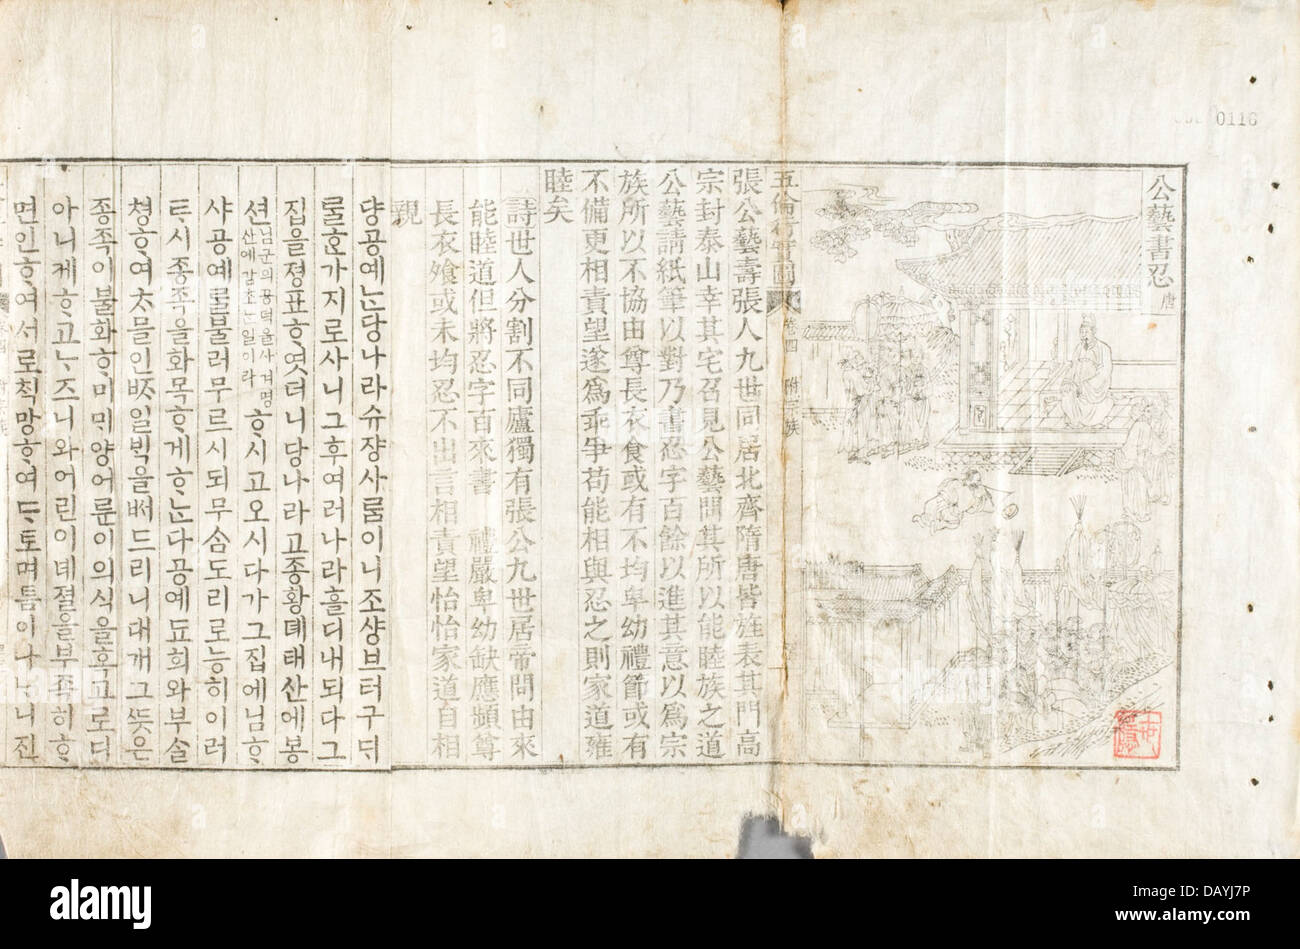 0116
公藝書忍 唐
五倫行實圖 卷四 附宗族
張公藝壽張人九世同居北齊隋唐皆旌表其門高
宗封泰山幸其宅召見公藝問其所以能睦族之道
公藝請紙筆以對乃書忍字百餘以進其意以爲宗
族所以不協由尊長衣食或有不均卑幼禮節或有
不備更相責望遂爲乖爭苟能相與忍之則家道雍
睦矣
詩世人分割不同廬獨有張公九世居帝問由來
能睦道但將忍字百來書 禮嚴卑幼缺應頻尊
長衣飧或未均忍不出言相責望怡怡家道自相
親
댱공예ᄂᆞᆫ당나라슈쟝사ᄅᆞᆷ이니조샹브터구ᄃᆡ
ᄅᆞᆯᄒᆞᆫ가지로사니그후여러나라흘디내되다그
집을졍표ᄒᆞ엿더니당나라고종황뎨태산에봉
션님군의공덕을사겨명산에감초ᄂᆞᆫ일이라ᄒᆞ시고오시다가그집에님ᄒᆞ
샤공예ᄅᆞᆯ불러무ᄅᆞ시되무ᄉᆞᆷ도리로능히이러
ᄐᆞ시종족을화목ᄒᆞ게ᄒᆞᄂᆞᆫ다공예됴희와부ᄉᆞᆯ
쳥ᄒᆞ여ᄎᆞᄆᆞᆯ인ᄍᆞ일ᄇᆡᆨ을ᄡᅥ드리니대개그ᄯᅳᆺ은
종족이불화ᄒᆞ미ᄆᆡ양어룬이의식을혹고로디
아니케ᄒᆞ고ᄂᆞᄌᆞ니와어린이녜졀을부족히ᄒᆞ
면인ᄒᆞ여서로ᄎᆡᆨ망ᄒᆞ여ᄃᆞ토며틈이나ᄂᆞ니진
alamy
Image ID: DAYJ7P
www.alamy.com